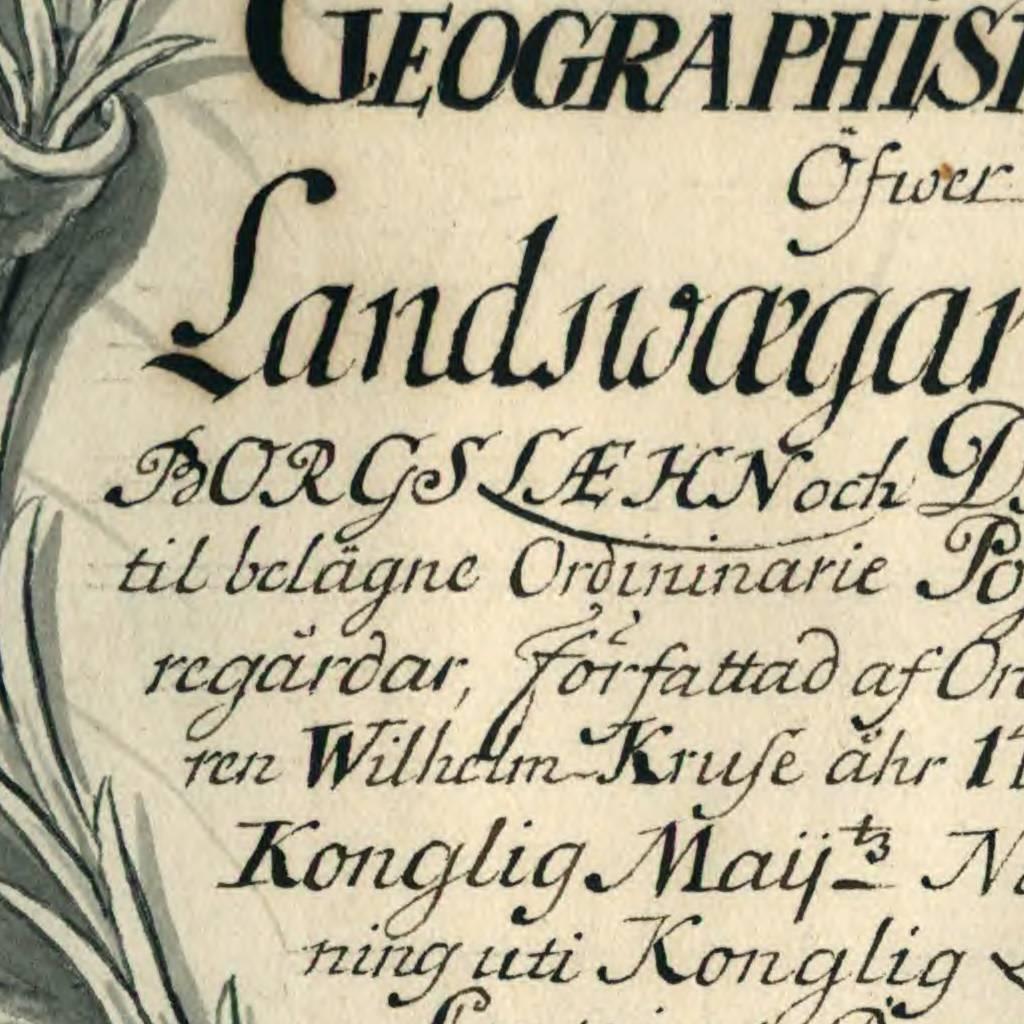 GEOGRAPHIS
Öfwer
Landswægar
BORGS LÆHN och
til belägne Ordininarie
regärdar, författad af
ren Wilhelm Kruse åhr
Konglig Maijtz
ning uti Konglig